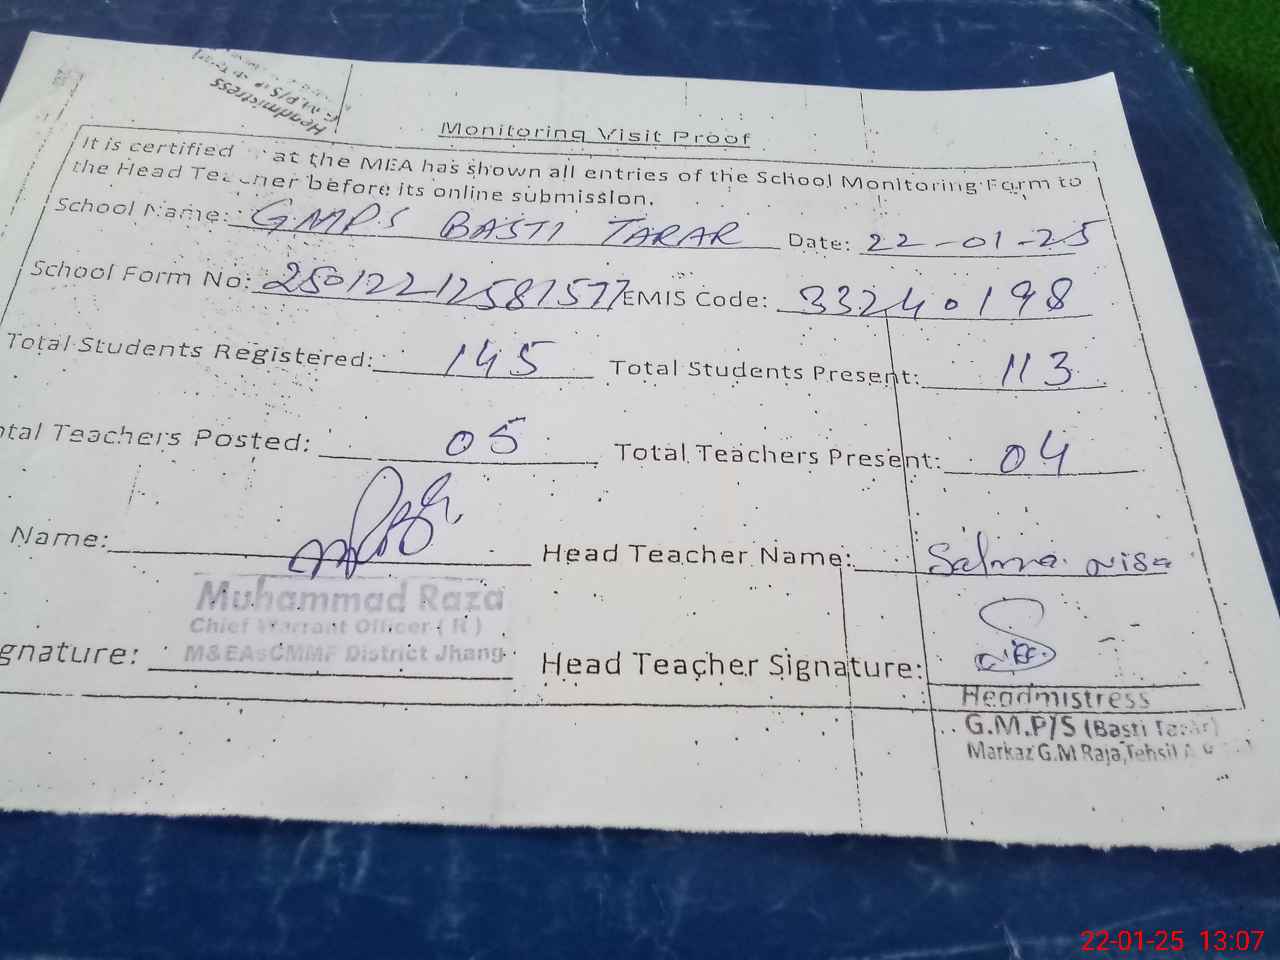 Headmistress
G.M.P/S
Monitoring Visit Proof
It is certified at the MEA has shown all entries of the School Monitoring Form to
the Head Teacher before its online submission.
School Name: GMPS BASTI TARAR Date: 22-01-25
School Form No: 250122212581577 EMIS Code: 33240198
Total Students Registered: 145 Total Students Present: 113
otal Teachers Posted: 05 Total Teachers Present: 04
Name: Head Teacher Name: Salma nisa
Muhammad Raza
Chief Warrant Officer ( R )
M&EAsCMMF District Jhang
gnature: Head Teacher Signature:
Headmistress
G.M.P/S (Basti Tarar)
Markaz G.M Raja,Tehsil
22-01-25 13:07